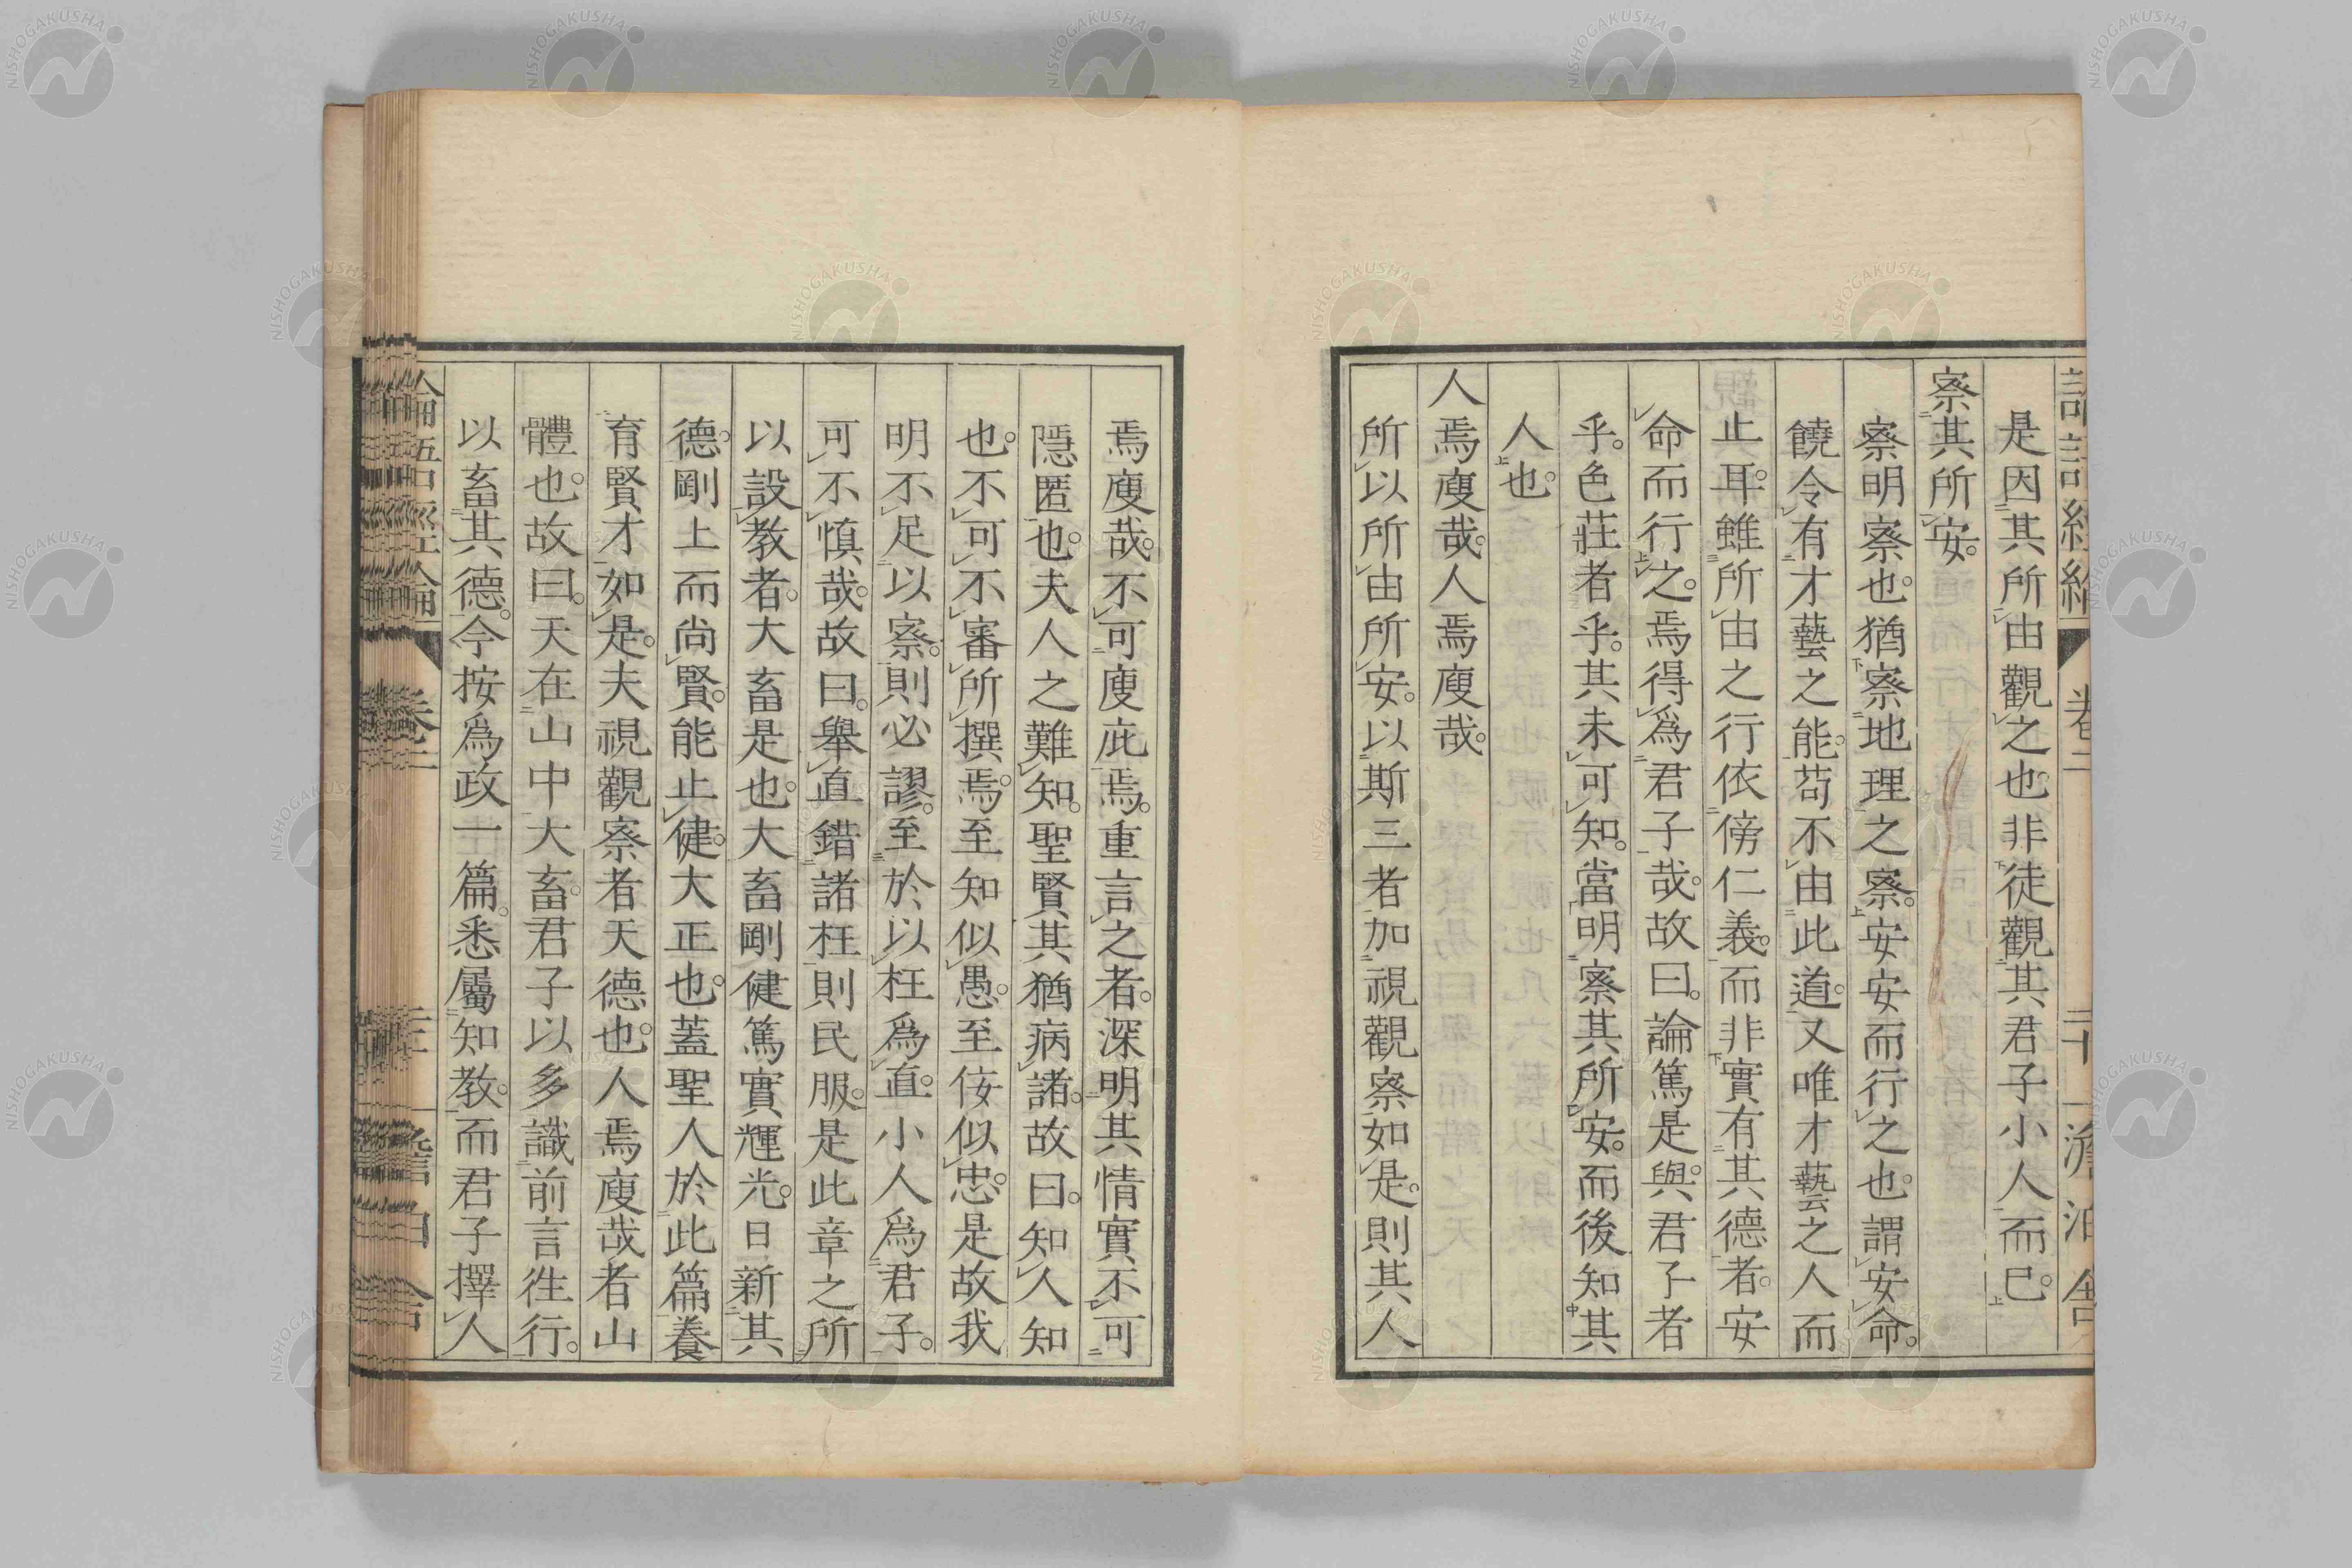 是因其所由觀之也。非徒觀其君子小人而已。
察其所安。
察明察也。猶察地理之察。安安而行之也。謂安命。
饒令有才藝之能。苟不由此道。又唯才藝之人而
止耳。雖所由之行依傍仁義。而非實有其德者。安
命而行之。焉得爲君子哉。故曰。論篤是與。君子者
乎。色莊者乎。其未可知。當明察其所安。而後知其
人也。
人焉廋哉。人焉廋哉。
所以所由所安。以斯三者加視觀察如是。則其人
焉廋哉。不可廋庇焉。重言之者。深明其情實不可
隱匿也。夫人之難知。聖賢其猶病諸。故曰。知人知
也。不可不審所撰焉。至知似愚。至佞似忠。是故我
明不足以察。則必謬。至於以枉爲直。小人爲君子。
可不慎哉。故曰。舉直錯諸枉則民服。是此章之所
以設教者。大畜是也。大畜剛健篤實輝光。日新其
德。剛上而尚賢。能止健。大正也。蓋聖人於此篇養
育賢才如是。夫視觀察者天德也。人焉廋哉者山
體也。故曰。天在山中大畜。君子以多識前言往行。
以畜其德。今按爲政一篇。悉屬知教。而君子擇人
論語經綸 卷二
NISHOGAKUSHA